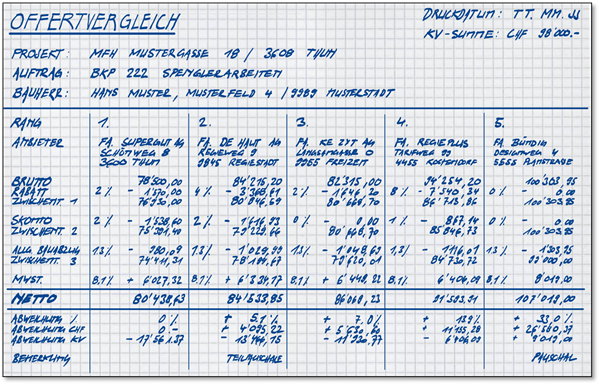 OFFERTVERGLEICH
DRUCKDATUM: TT. MM. JJ
KV-SUMME: CHF 98'000.-
PROJEKT: MFH MUSTERGASSE 18 / 3608 THUN
AUFTRAG: BKP 222 SPENGLERARBEITEN
BAUHERR: HANS MUSTER, MUSTERFELD 4 / 9989 MUSTERSTADT
RANG 1. 2. 3. 4. 5.
ANBIETER FA. SUPERGUT AG FA. DE HAUT AG FA. KE ZYT AG FA. REGIEPLUS FA. BÜNDIG
SCHÖNWEG 8 REGIEWEG 9 LANGSAMGASSE 0 TARIFWEG 8 DESIGNWEG 4
3600 THUN 9845 REGIESTADT 9955 FREIZEN 4455 5555
BRUTTO 78'500,00 84'215,20 82'315,00 94'254,20 100'303,95
RABATT 2% - 1'570,00 4% - 3'368,61 2% - 1'646,30 8% - 7'540,34 0% - 0.00
ZWISCHENT. 1 76'930,00 80'846,59 80'668,70 86'713,86 100'303.95
SKONTO 2% - 1'538,60 2% - 1'616,93 0% - 0.00 1% - 867,14 0% - 0.00
ZWISCHENT. 2 75'391,40 79'229,66 80'668,70 85'846,73 100'303.95
ALLG. BAUABZUG 1,3% - 980,09 1,3% - 1'029,99 1,3% - 1'048,69 1,3% - 1'116,01 1,3% - 1'303,95
ZWISCHENT. 3 74'411,31 78'199,67 79'620,01 84'730,72 99'000,00
MWST. 8,1% + 6'027,32 8,1% + 6'334,17 8,1% + 6'449,22 8,1% 8,1% 8'019,00
NETTO 80'438,63 84'533,85 86'069,23 107'019,00
ABWEICHUNG % 0% + 5,1% + 7.0% + + 33,0%
ABWEICHUNG CHF 0.- + 4'095,22 + 5'630,60 + 11'155,28 + 26'580,37
ABWEICHUNG KV - 17'561.37 - 13'466,15 - 11'930,77 - 6'406,09 + 9'019,00
BEMERKUNG TEILPAUSCHALE PAUSCHAL